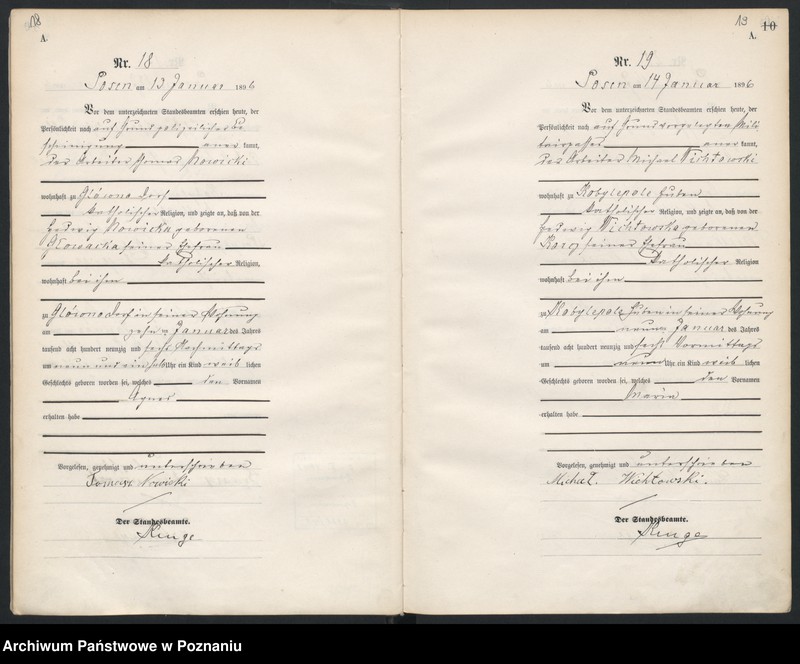 18
A.
Nr. 18
Posen am 13 Januar 1896
Vor dem unterzeichneten Standesbeamten erschien heute, der
Persönlichkeit nach auf Grund polizeilicher Be
scheinigung aner kannt,
der Arbeiter Thomas Nowicki
wohnhaft zu Glówno Dorf
katholischer Religion, und zeigte an, daß von der
Hedwig Nowicka geborenen
Głowacka seiner Ehefrau
katholischer Religion,
wohnhaft bei ihm
zu Glówno Dorf in seiner Wohnung
am zehn ten Januar des Jahres
tausend acht hundert neunzig und sechs Nachmittags
um neun und ein halb Uhr ein Kind weib lichen
Geschlechts geboren worden sei, welches den Vornamen
Agnes
erhalten habe
Vorgelesen, genehmigt und unterschrieben
Tomasz Nowicki
Der Standesbeamte.
19
10
A.
Nr. 19
Posen am 14 Januar 1896
Vor dem unterzeichneten Standesbeamten erschien heute, der
Persönlichkeit nach auf Grund vorgelegten Mili
tairpasses aner kannt,
der Arbeiter Michael Wichtowski
wohnhaft zu Kobylepole
katholischer Religion, und zeigte an, daß von der
Hedwig Wichtowska geborenen
seiner Ehefrau
katholischer Religion
wohnhaft bei ihm
zu Kobylepole in seiner Wohnung
am neun ten Januar des Jahres
tausend acht hundert neunzig und sechs Vormittags
um neun Uhr ein Kind weib lichen
Geschlechts geboren worden sei, welches den Vornamen
Maria
erhalten habe
Vorgelesen, genehmigt und unterschrieben
Michał Wichtowski.
Der Standesbeamte.
Archiwum Państwowe w Poznaniu